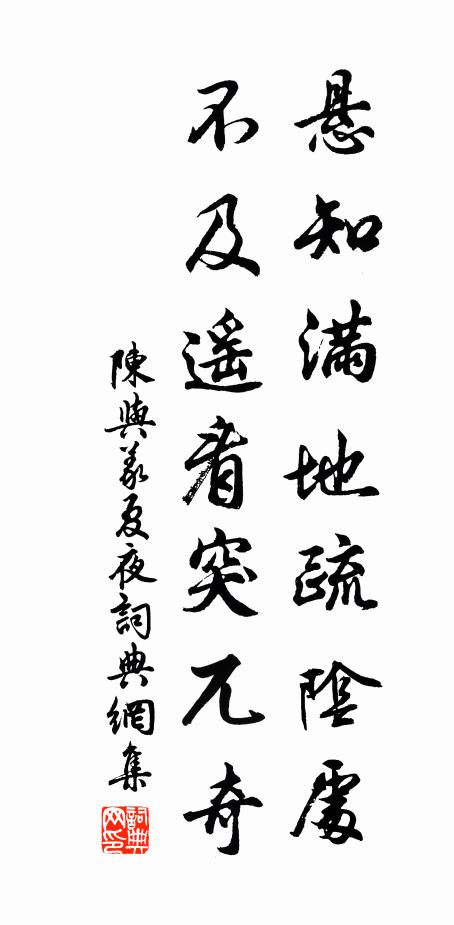 悬知满地疏陰處
不及遥看突兀奇
陳與義夏夜詞典網集
詞典网印